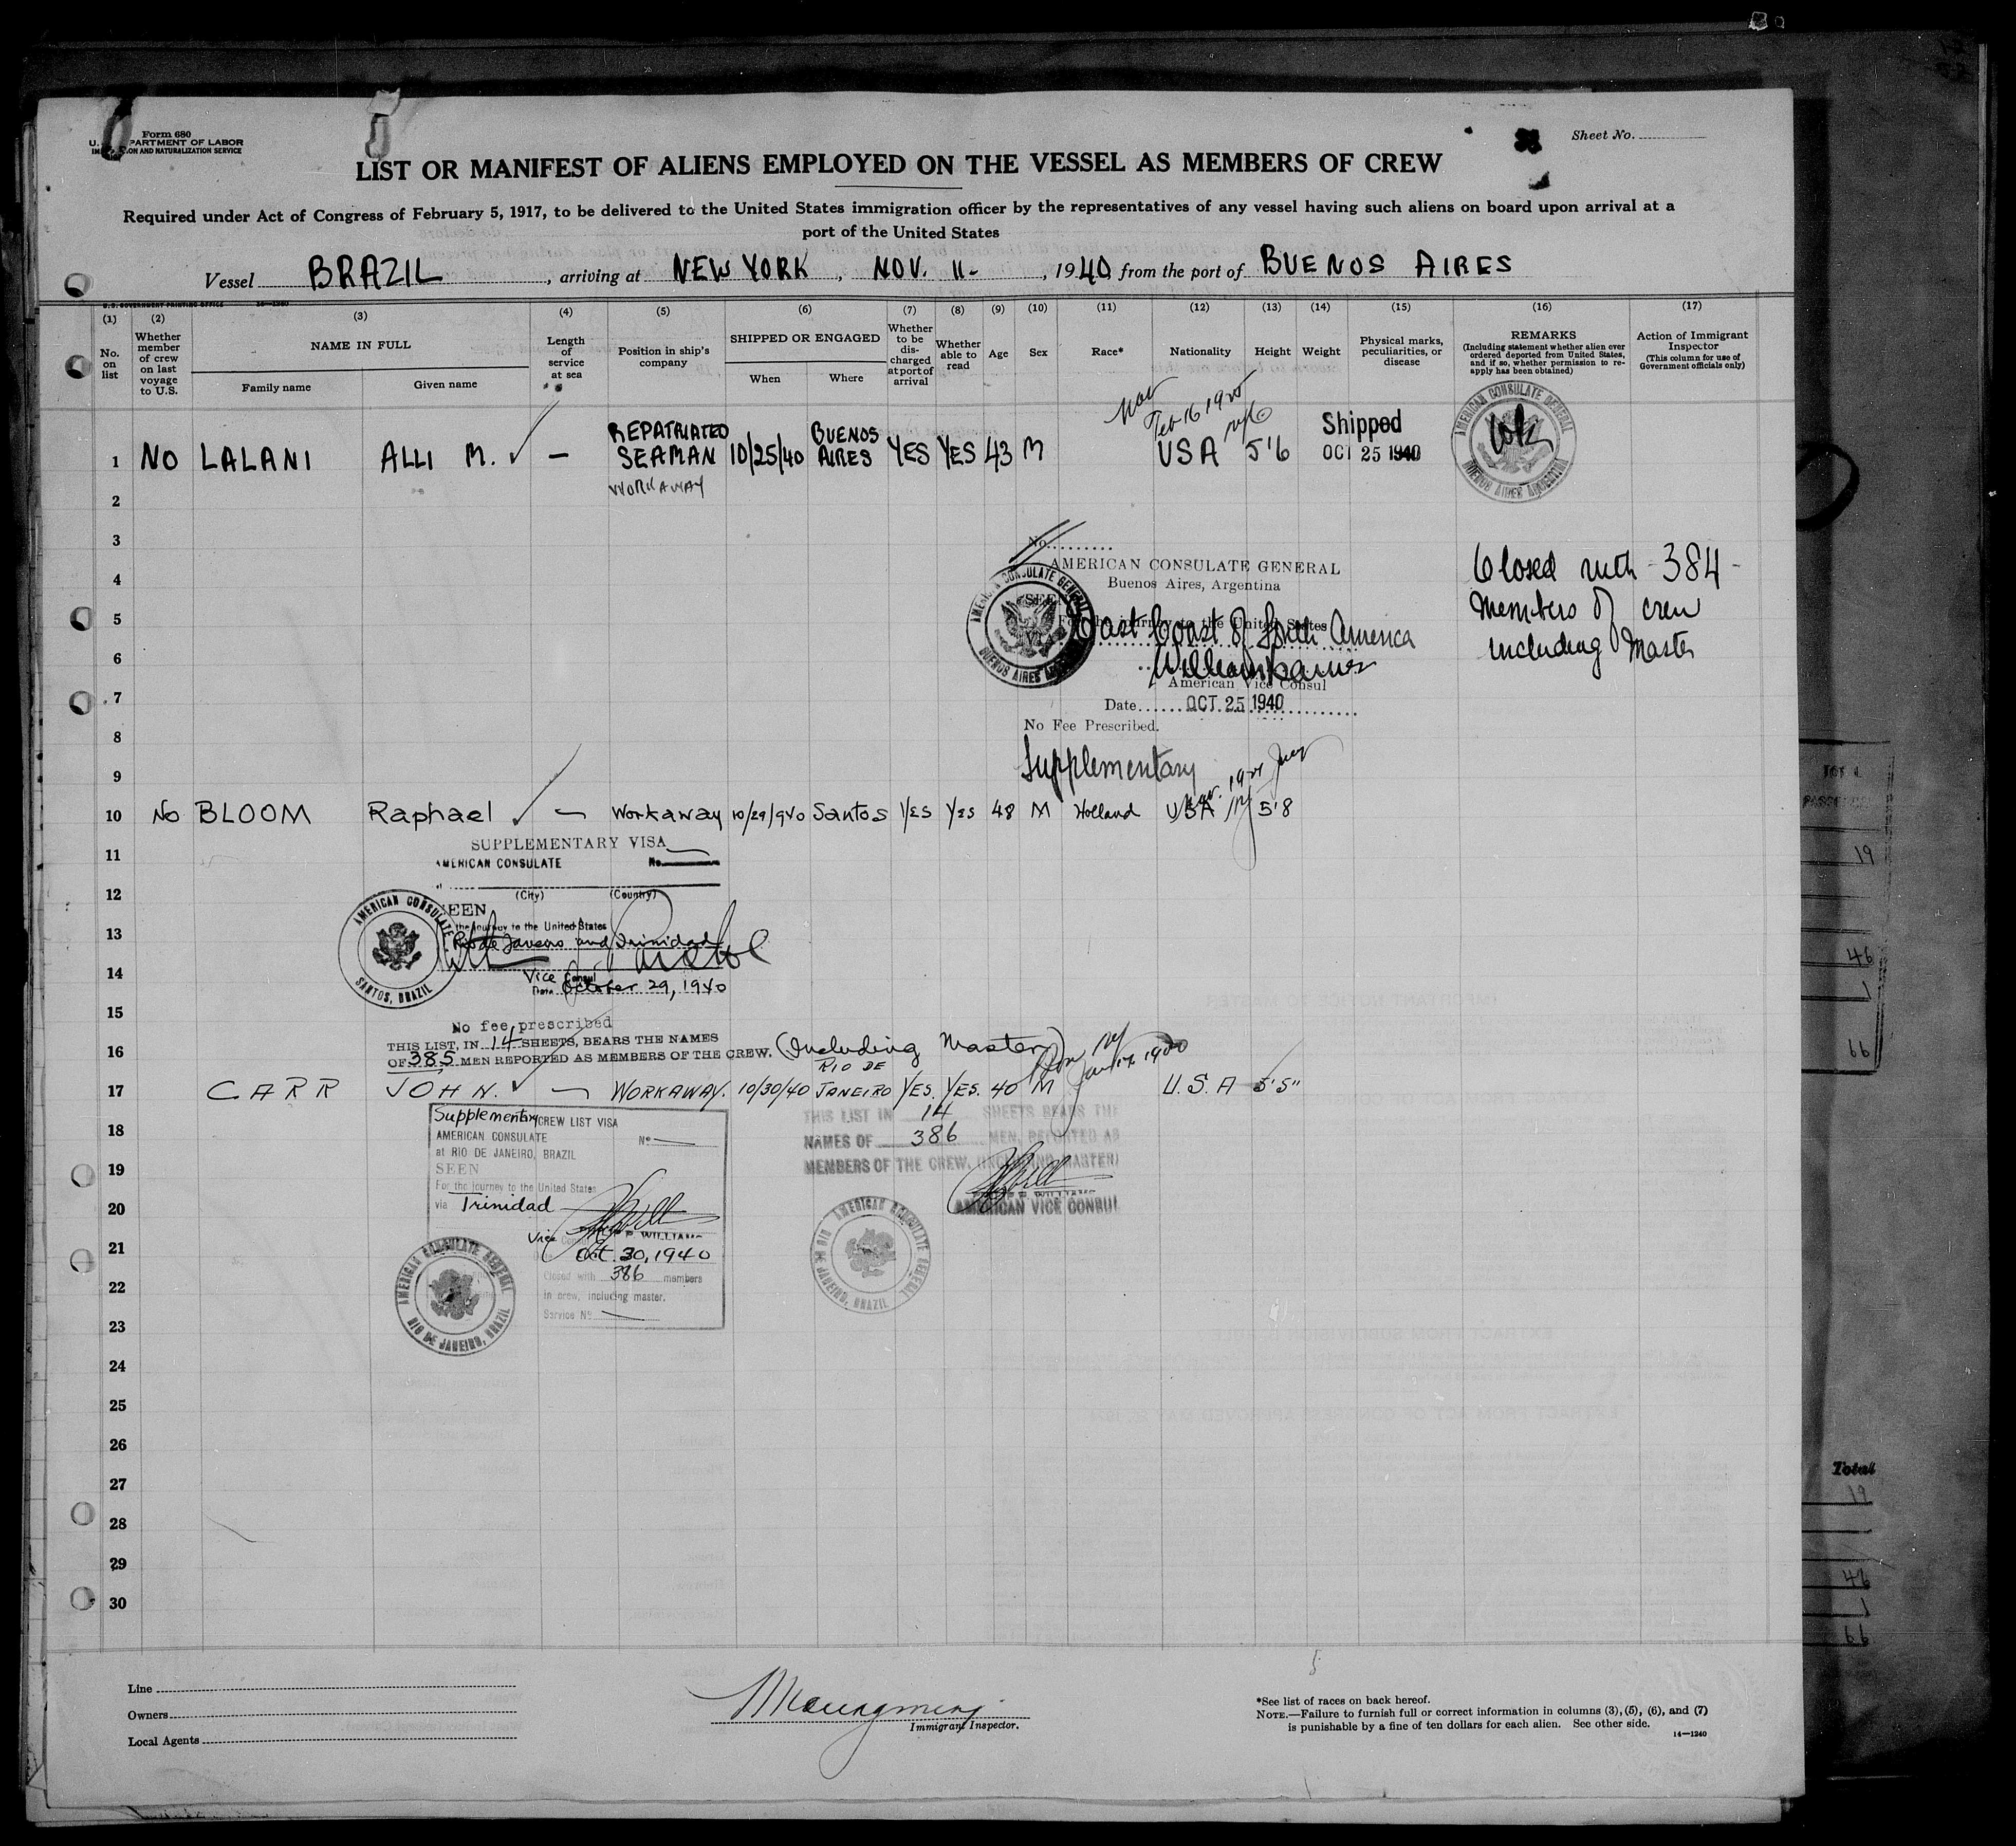 Form 680
U. PARTMENT OF LABOR
ON AND NATURALIZATION SERVICE
Sheet No.
LIST OR MANIFEST OF ALIENS EMPLOYED ON THE VESSEL AS MEMBERS OF CREW
Required under Act of Congress of February 5, 1917, to be delivered to the United States immigration officer by the representatives of any vessel having such aliens on board upon arrival at a
port of the United States
Vessel BRAZIL, arriving at NEW YORK, NOV. 11-, 1940, from the port of BUENOS AIRES
U.S. GOVERNMENT PRINTING OFFICE 14—1240
(1) (2) (3) (4) (5) (6) (7) (8) (9) (10) (11) (12) (13) (14) (15) (16) (17)
No. on list
Whether member of crew on last voyage to U.S.
NAME IN FULL
Family name
Given name
Length of service at sea
Position in ship's company
SHIPPED OR ENGAGED
When
Where
Whether to be discharged at port of arrival
Whether able to read
Age
Sex
Race*
Nationality
Height
Weight
Physical marks, peculiarities, or disease
REMARKS
(Including statement whether alien ever ordered deported from United States, and if so, whether permission to reapply has been obtained)
Action of Immigrant Inspector
(This column for use of Government officials only)
Feb 16 1920
1 NO LALANI ALLI M. ✓ — REPATRIATED SEAMAN 10/25/40 BUENOS AIRES YES YES 43 M USA 5'6 Shipped OCT 25 1940
WORKAWAY
AMERICAN CONSULATE GENERAL
BUENOS AIRES ARGENTINA
2
3
No.
4
AMERICAN CONSULATE GENERAL
Buenos Aires, Argentina
SEEN
5
For the journey to the United States
VIA East Coast of South America
6
American Vice Consul
7
Date OCT. 25 1940
No Fee Prescribed.
AMERICAN CONSULATE GENERAL
BUENOS AIRES ARGENTINA
Closed with -384-
members of crew
including Master
8
Supplementary
9
10 No BLOOM Raphael ✓ — Workaway 10/29/940 Santos YES YES 48 M Holland USA 5'8
SUPPLEMENTARY VISA
11
AMERICAN CONSULATE No.
12
(City) (Country)
SEEN
the journey to the United States
13
Rio de Janeiro and Trinidad
14
Vice Consul
Date October 29, 1940
AMERICAN CONSULATE
SANTOS, BRAZIL
15
No fee prescribed
THIS LIST, IN 14 SHEETS, BEARS THE NAMES
16
OF 385 MEN REPORTED AS MEMBERS OF THE CREW. (Including Master)
17 CARR JOHN. ✓ — WORKAWAY. 10/30/40 RIO DE JANEIRO YES. YES. 40 M U.S.A 5'5"
Supplementary CREW LIST VISA
18
AMERICAN CONSULATE No
at RIO DE JANEIRO, BRAZIL
19
SEEN
For the journey to the United States
20
via Trinidad
21
Vice Consul WILLIAMS
Oct. 30, 1940
22
Closed with 386 members
in crew, including master.
23
Service No
AMERICAN CONSULATE GENERAL
RIO DE JANEIRO, BRAZIL
THIS LIST IN 14 SHEETS BEARS THE
NAMES OF 386 MEN, REPORTED AS
MEMBERS OF THE CREW. (INCLUDING MASTER)
WILLIAMS
AMERICAN VICE CONSUL
AMERICAN CONSULATE GENERAL
RIO DE JANEIRO, BRAZIL
24
25
26
27
28
29
30
Line
Owners
Local Agents
Immigrant Inspector.
*See list of races on back hereof.
NOTE.—Failure to furnish full or correct information in columns (3), (5), (6), and (7)
is punishable by a fine of ten dollars for each alien. See other side.
14—1240
19
46
1
66
Total
19
46
1
66